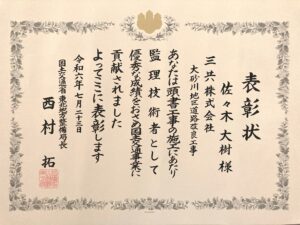 表彰状
佐々木 大樹 様
三共株式会社
大砂川地区道路改良工事
あなたは頭書工事の施工にあたり
監理技術者として
優秀な成績をおさめ国土交通事業に
貢献されました
よってここに表彰します
令和六年七月二十三日
国土交通省 東北地方整備局長
西村 拓